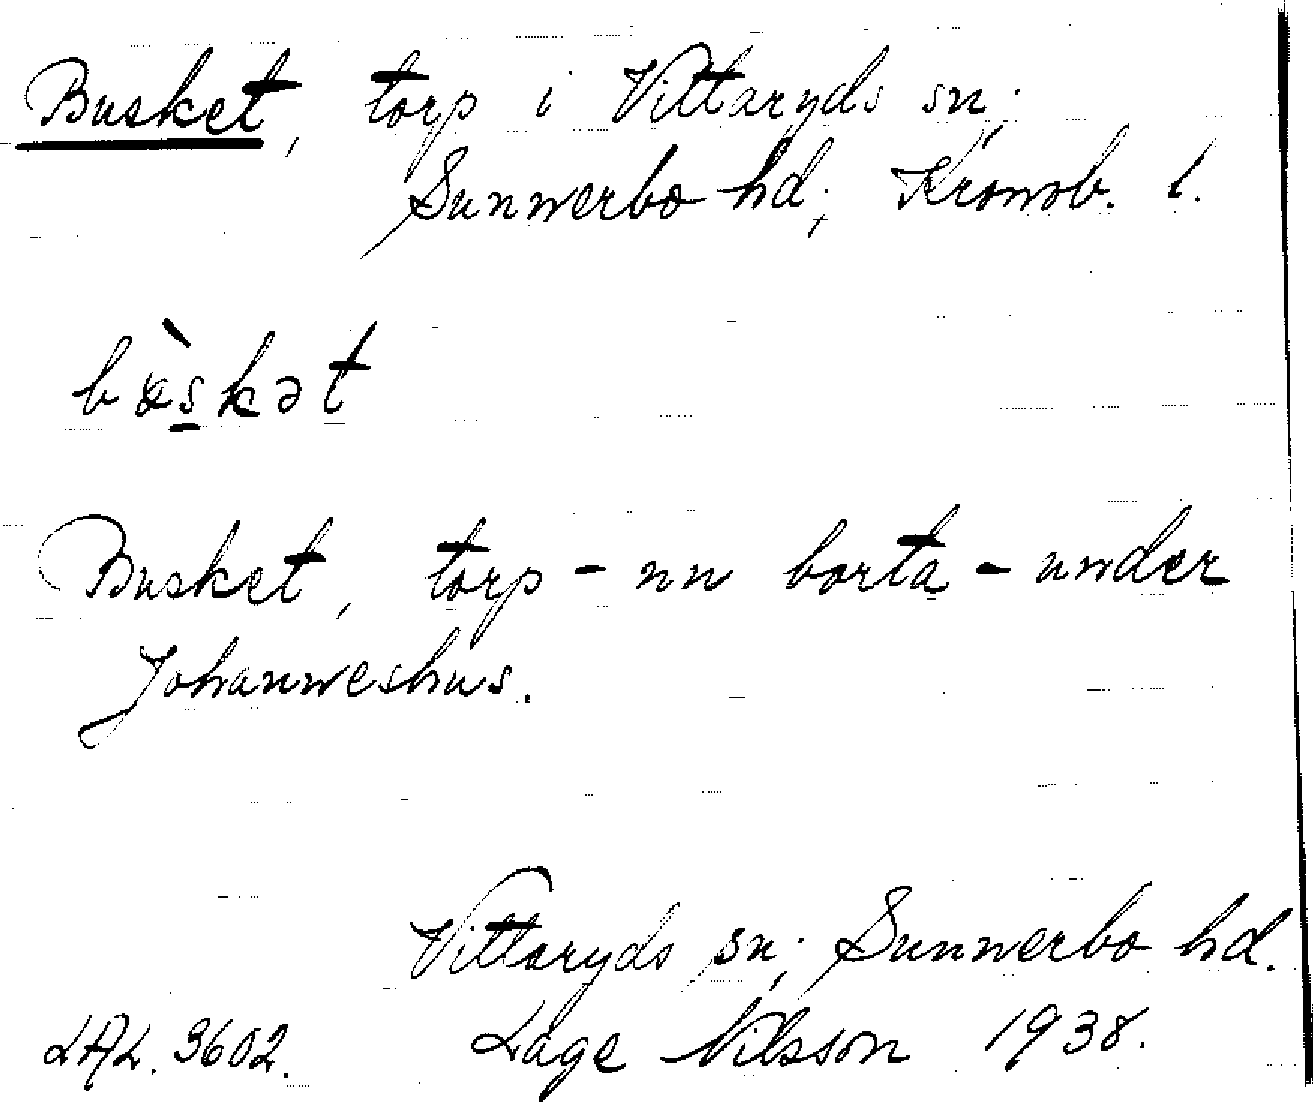 Busket, torp i Vittaryds sn;
Sunnerbo hd; Kronob. l.
bæ̀skət
Busket, torp - nu borta - under
Johanneshus.
Vittaryds sn; Sunnerbo hd.
LAL. 3602. Lage Nilsson 1938.